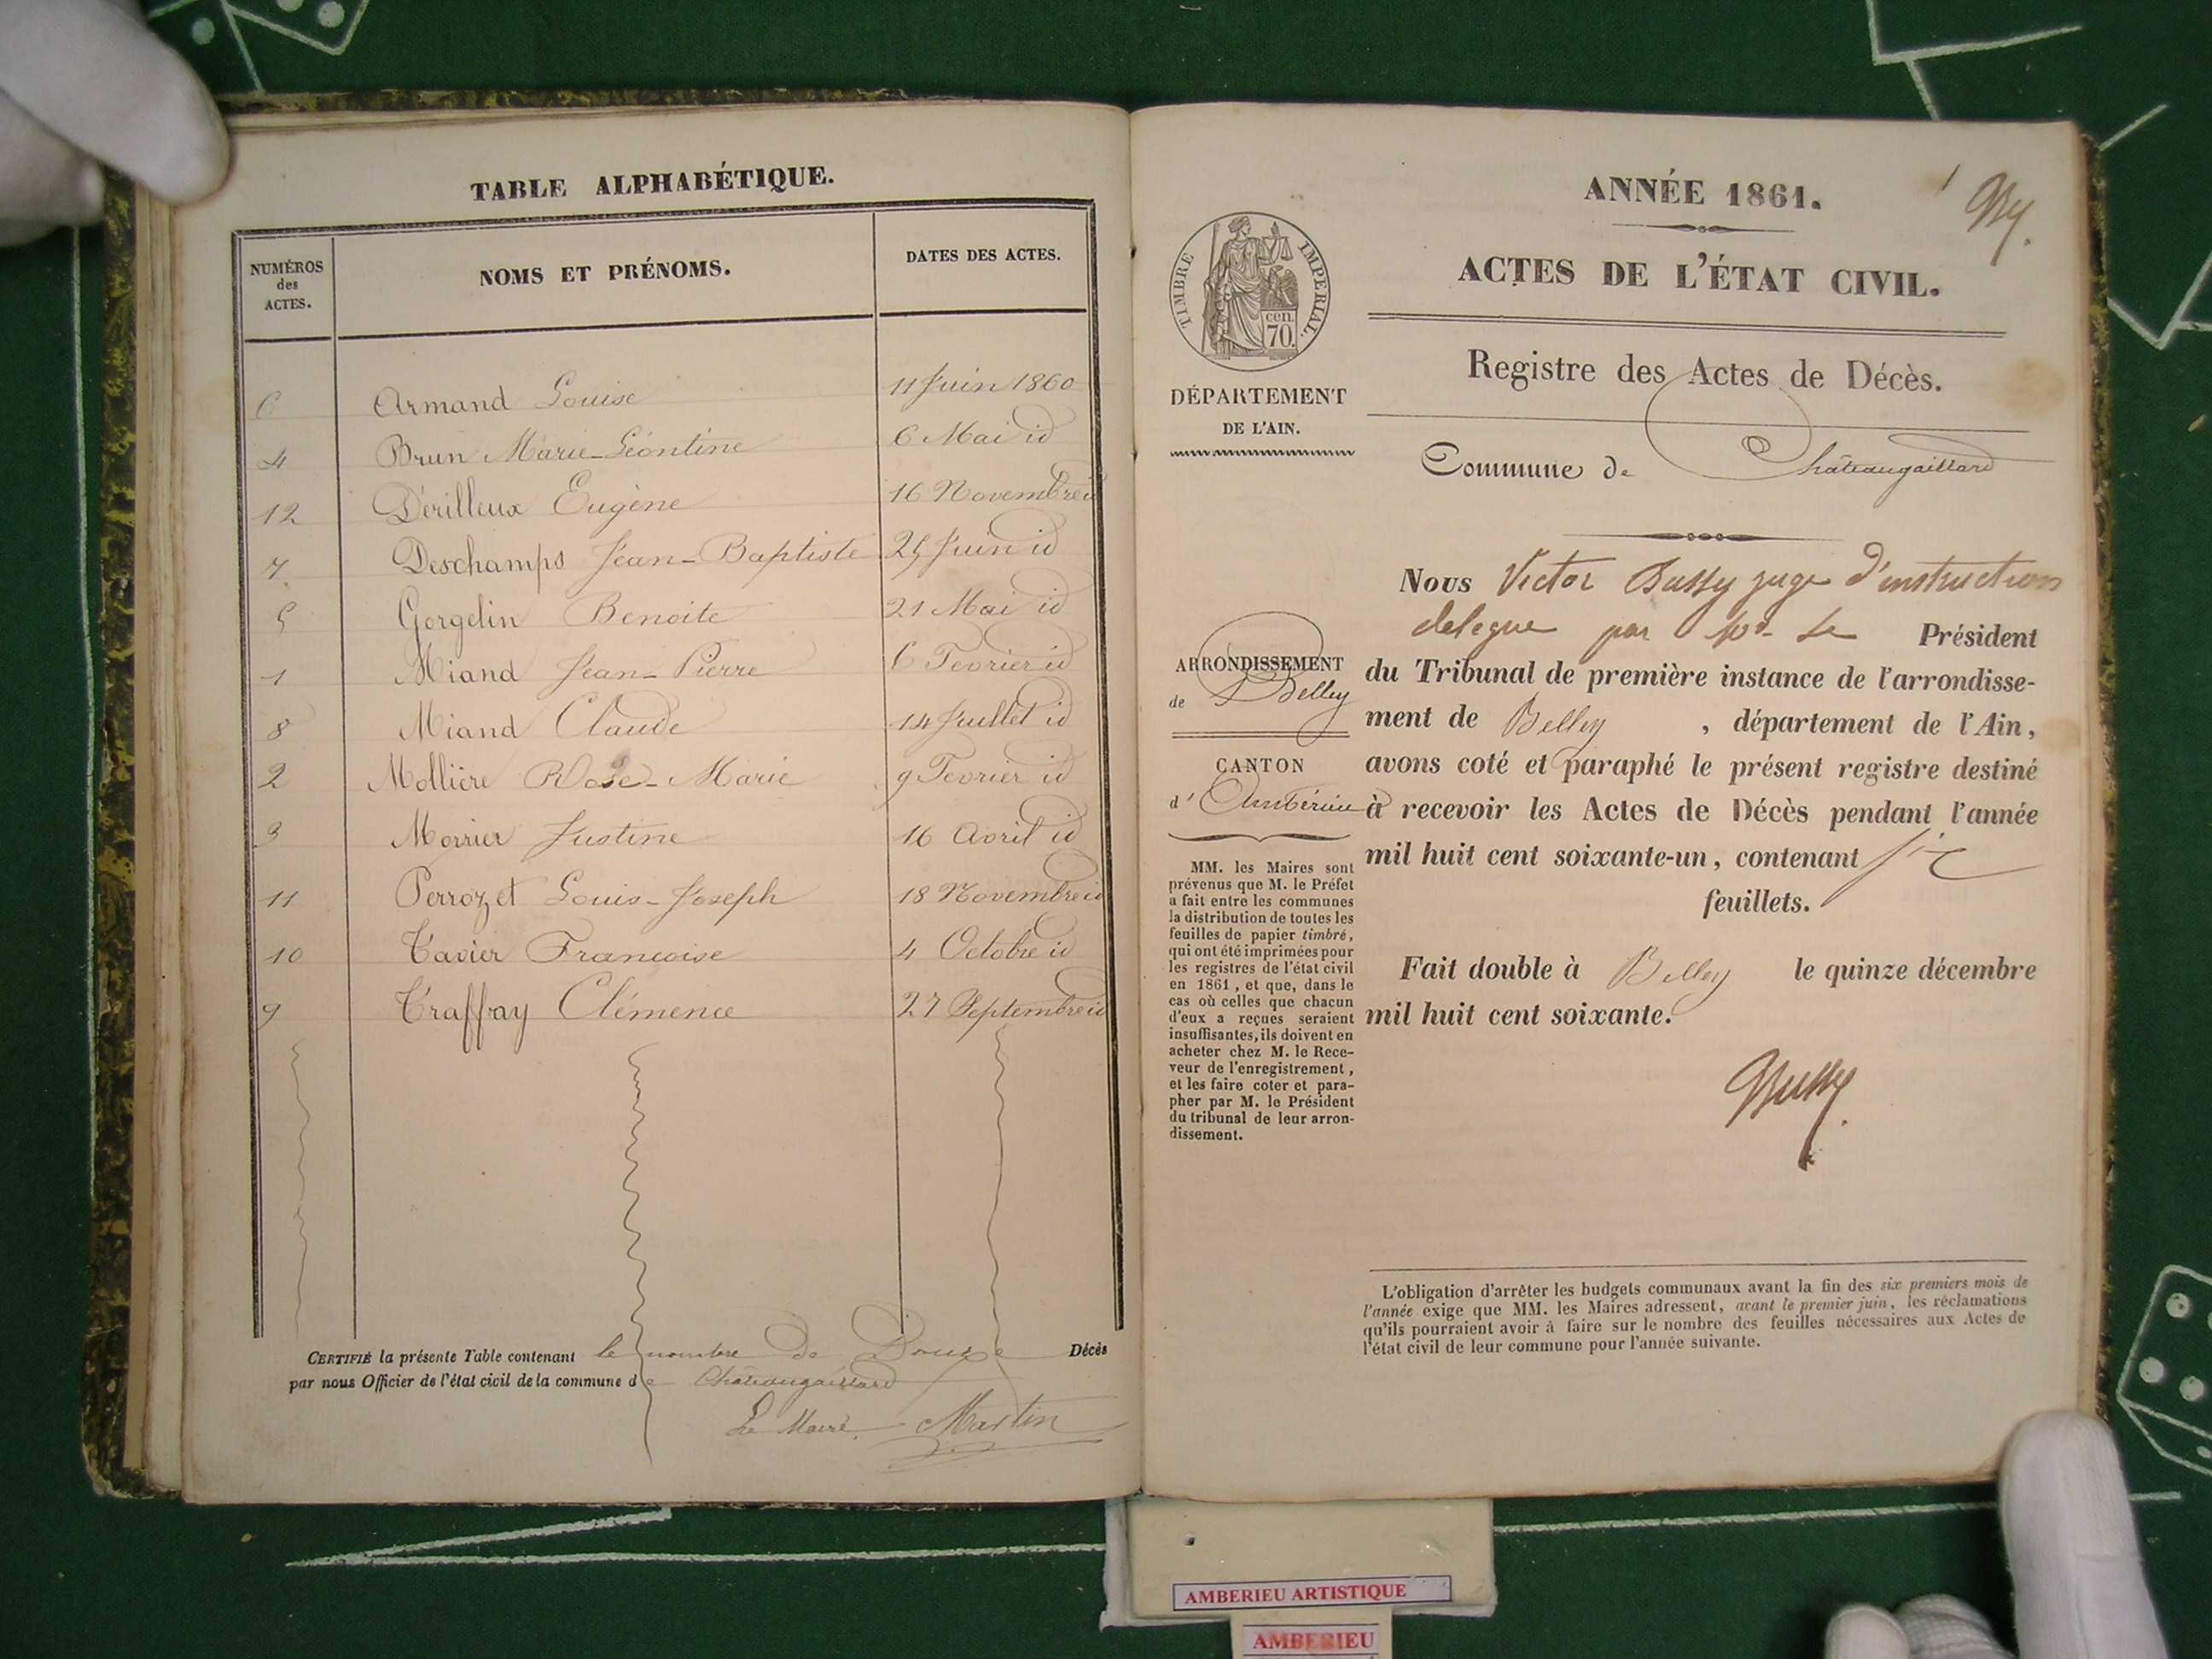 TABLE ALPHABÉTIQUE.
NUMÉROS des ACTES.
NOMS ET PRÉNOMS.
DATES DES ACTES.
6 Armand Louise 11 Juin 1860
4 Brun Marie-Léontine 6 Mai id
12 Dérilleux Eugène 16 Novembre id
7 Deschamps Jean-Baptiste 25 Juin id
5 Gorgelin Benoite 21 Mai id
1 Miand Jean-Pierre 6 Fevrier id
8 Miand Claude 14 Juillet id
2 Mollière Rose-Marie 9 Fevrier id
3 Morrier Justine 16 Avril id
11 Perrozet Louis-Joseph 18 Novembre id
10 Tavier Francoise 4 Octobre id
9 Traffay Clémence 27 Septembre id
CERTIFIÉ la présente Table contenant le nombre de Douze Décès
par nous Officier de l'état civil de la commune de Châteaugaillard
Le Maire Martin
1 By.
ANNÉE 1861.
ACTES DE L'ÉTAT CIVIL.
TIMBRE IMPERIAL.
cen. 70.
DÉPARTEMENT
DE L'AIN.
Registre des Actes de Décès.
Commune de Châteaugaillard
Nous Victor Bussy juge d'instruction
delegue par Mr le Président
du Tribunal de première instance de l'arrondisse-
ment de Belley , département de l'Ain,
avons coté et paraphé le présent registre destiné
à recevoir les Actes de Décès pendant l'année
mil huit cent soixante-un, contenant six
feuillets.
Fait double à Belley le quinze décembre
mil huit cent soixante.
Bussy
ARRONDISSEMENT
de Belley
CANTON
d'Ambérieu
MM. les Maires sont
prévenus que M. le Préfet
a fait entre les communes
la distribution de toutes les
feuilles de papier timbré,
qui ont été imprimées pour
les registres de l'état civil
en 1861, et que, dans le
cas où celles que chacun
d'eux a reçues seraient
insuffisantes, ils doivent en
acheter chez M. le Rece-
veur de l'enregistrement,
et les faire coter et para-
pher par M. le Président
du tribunal de leur arron-
dissement.
L'obligation d'arrêter les budgets communaux avant la fin des six premiers mois de
l'année exige que MM. les Maires adressent, avant le premier juin, les réclamations
qu'ils pourraient avoir à faire sur le nombre des feuilles nécessaires aux Actes de
l'état civil de leur commune pour l'année suivante.
AMBERIEU ARTISTIQUE
AMBERIEU